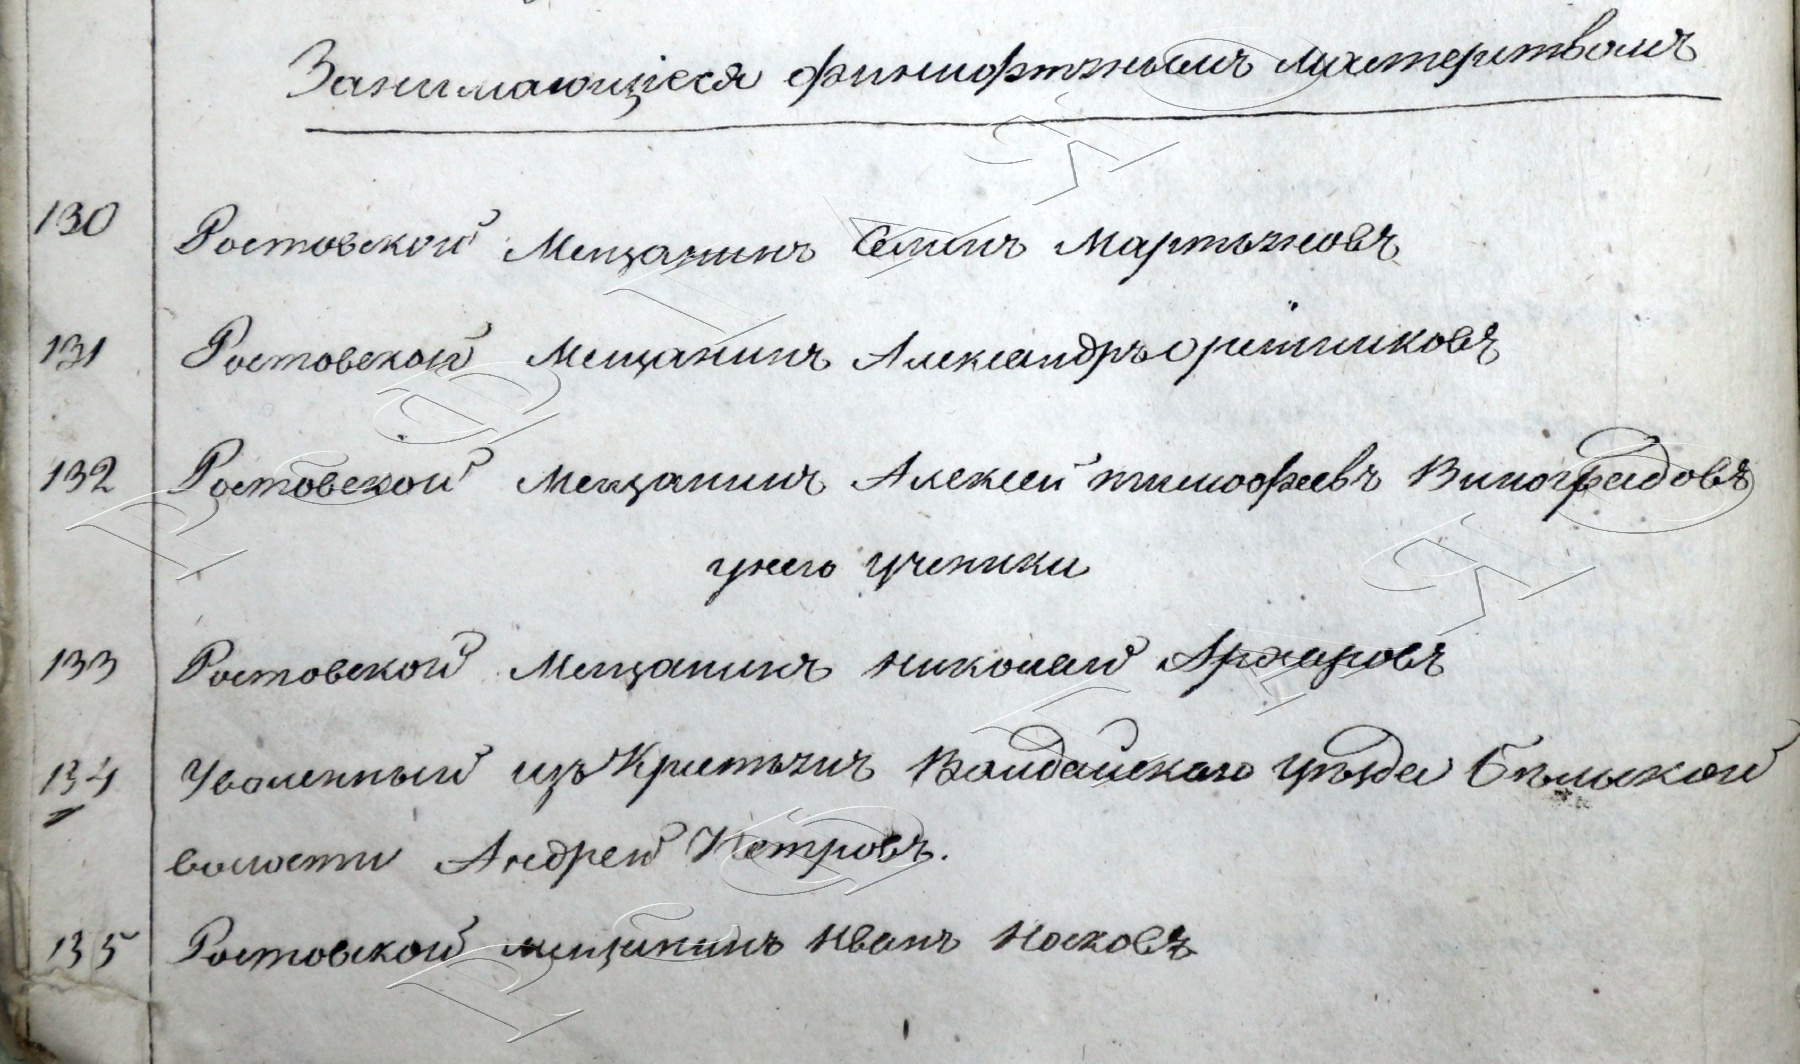 Занимающіеся финифтянымъ мастерствомъ
130 Ростовской Мещанинъ Семенъ Мартыновъ
131 Ростовской Мещанинъ Александръ Орѣшниковъ
132 Ростовской Мещанинъ Алексей тимофеевъ Виноградовъ
унего ученики
133 Ростовской Мещанинъ николай Архаровъ
134 Уволенный изъ Крестьянъ Валдайскаго уѣзда
волости Андрей Петровъ.
135 Ростовской мещанинъ Иванъ Носковъ